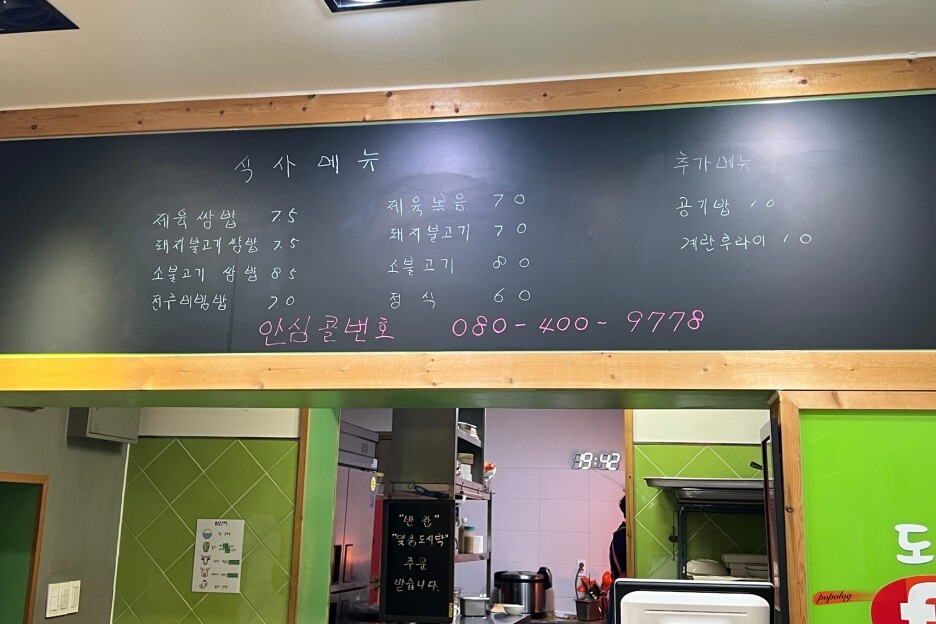 식사메뉴
제육쌈밥 75
돼지불고기쌈밥 75
소불고기 쌈밥 85
전주비빔밥 70
제육볶음 70
돼지불고기 70
소불고기 80
정식 60
추가메뉴
공기밥 10
계란후라이 10
안심콜번호 080-400-9778
19:42
"반찬"
주문
받습니다.
원산지
도
f
popolog